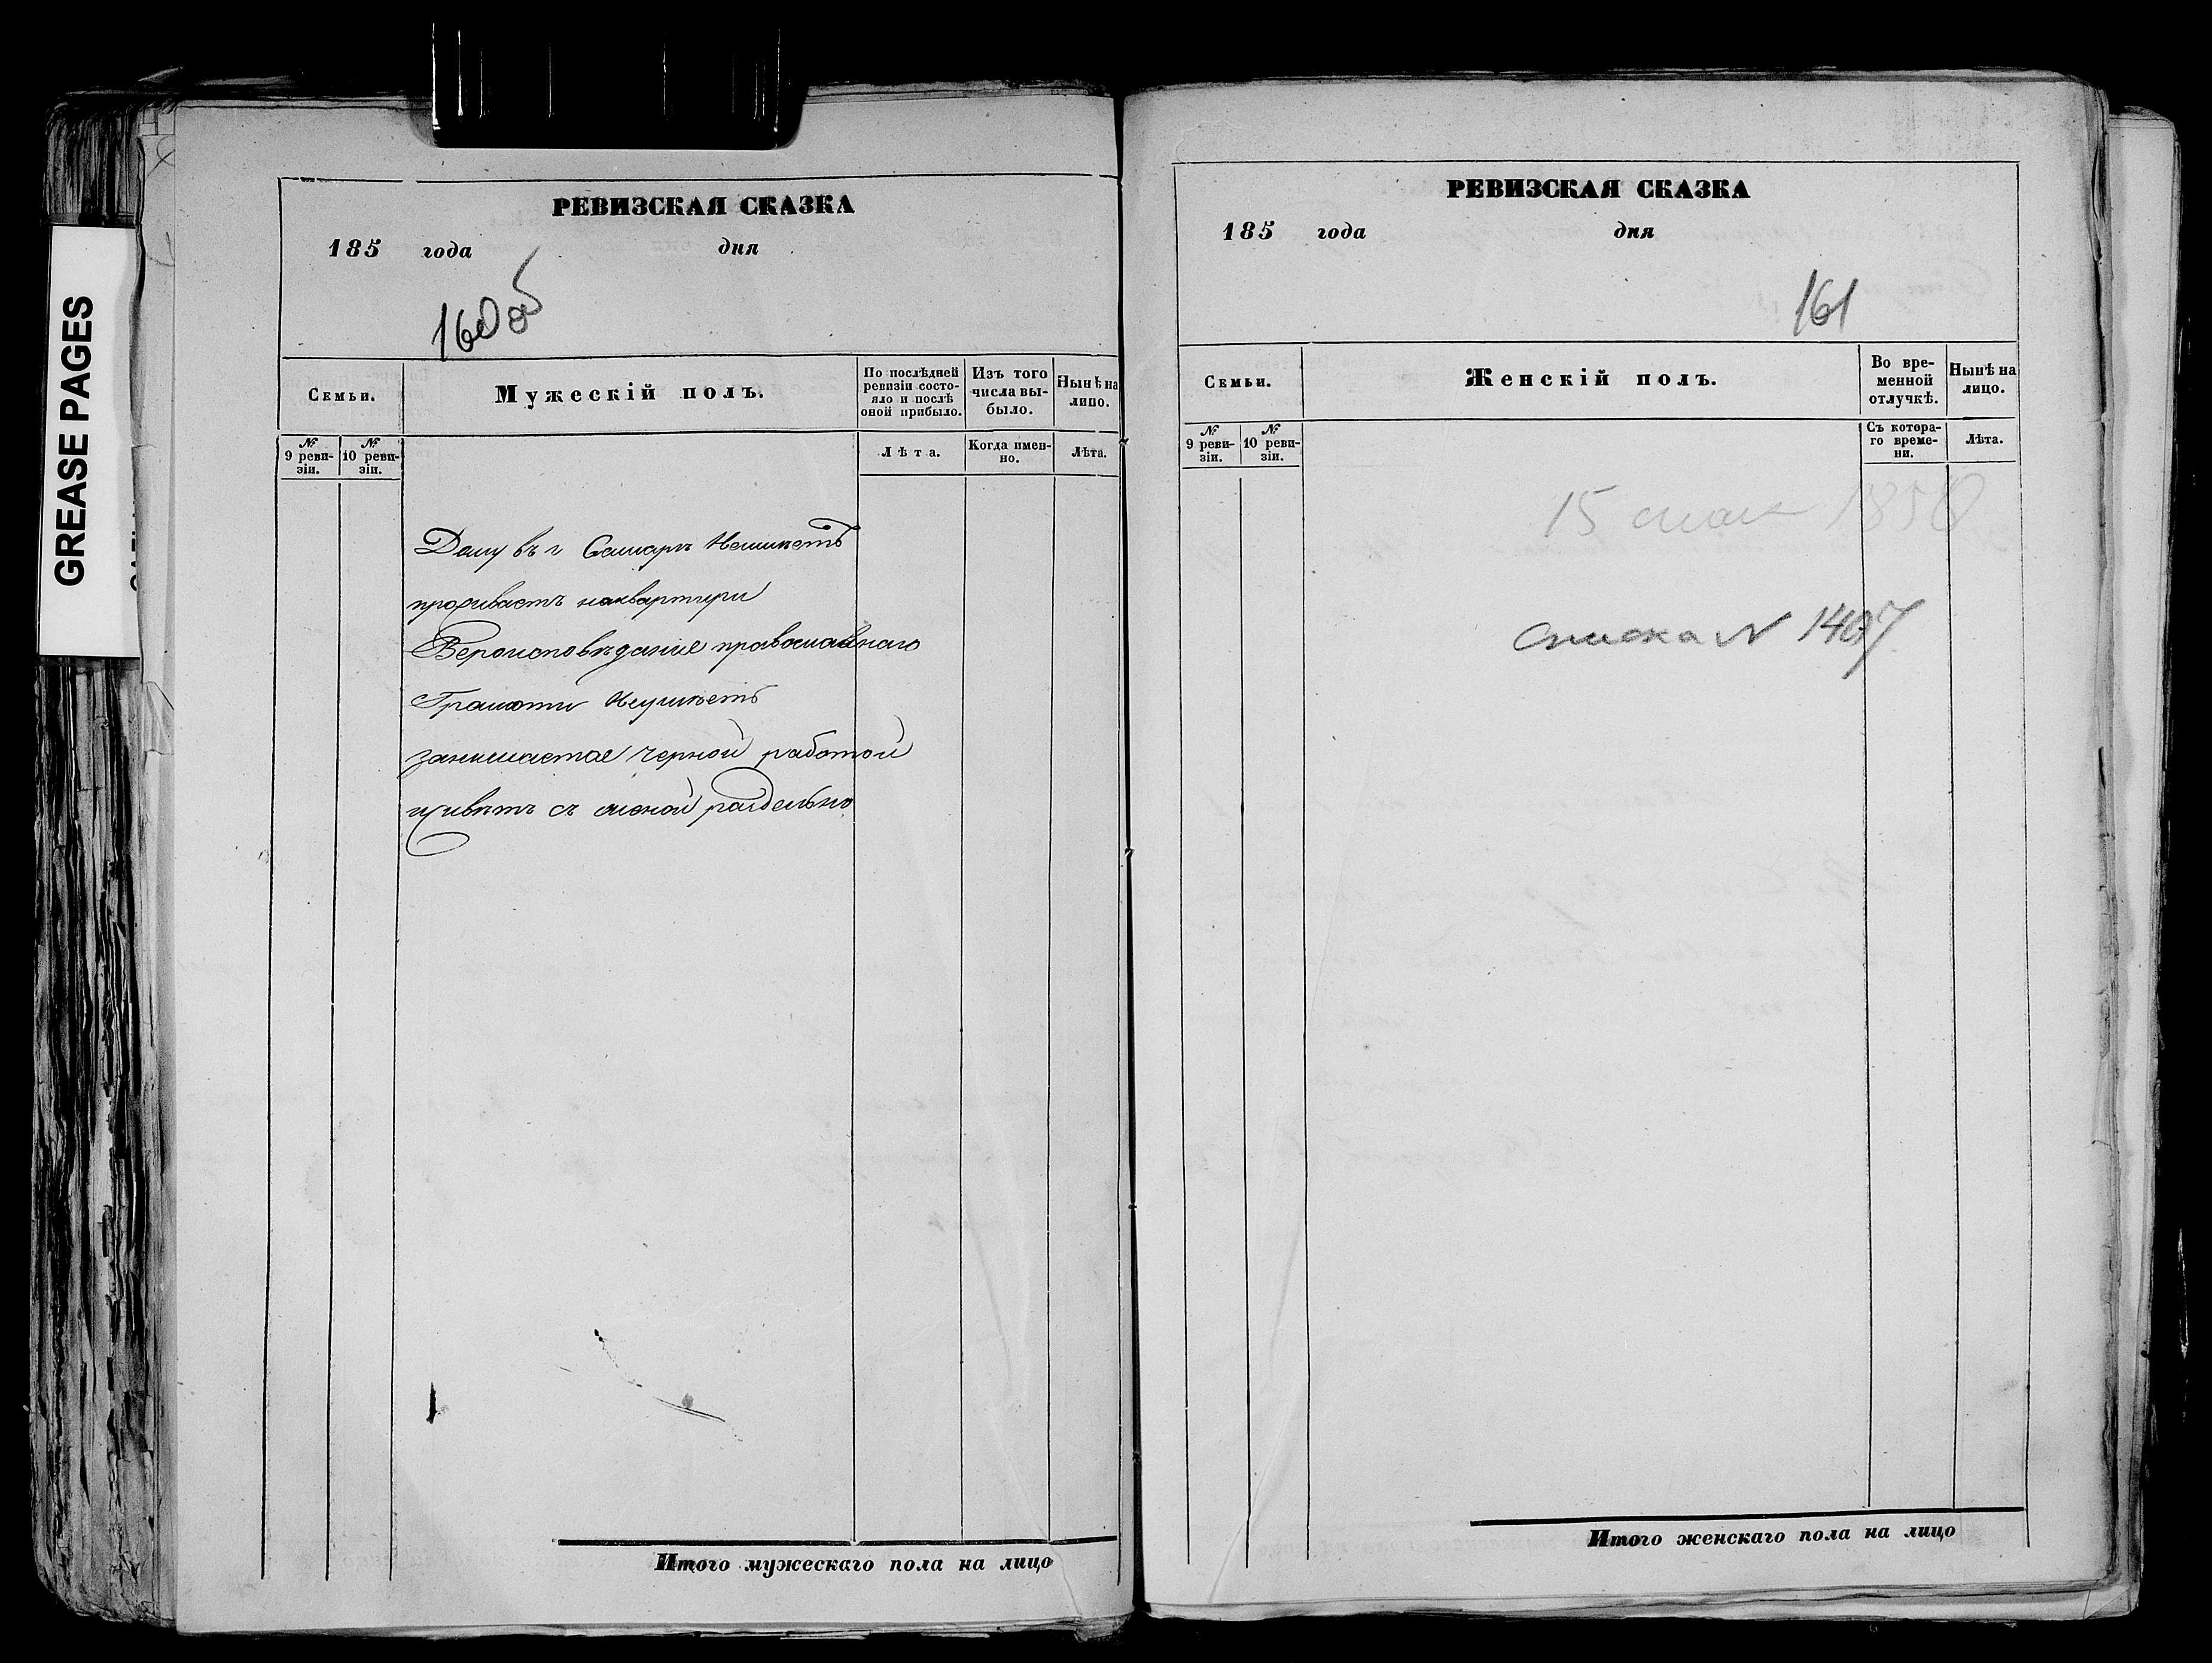 GREASE PAGES
РЕВИЗСКАЯ СКАЗКА
185 года дня
160 об
Семьи.
Мужескій полъ.
По послѣдней ревизіи состояло и послѣ оной прибыло.
Изъ того числа выбыло.
Нынѣ на лицо.
№ 9 ревизіи.
№ 10 ревизіи.
Лѣта.
Когда именно.
Лѣта.
Дому въ г Самарѣ Неимѣетъ
проживаетъ наквартири
Вероисповѣдание православнаго
Грамоти Неумѣетъ
занимается черной работой
живѣтъ съ женой раздельно
Итого мужескаго пола на лицо
РЕВИЗСКАЯ СКАЗКА
185 года дня
161
Семьи.
Женскій полъ.
Во временной отлучкѣ.
Нынѣ на лицо.
№ 9 ревизіи.
№ 10 ревизіи.
Съ котораго времени.
Лѣта.
15 мая 1858
списка № 1407
Итого женскаго пола на лицо